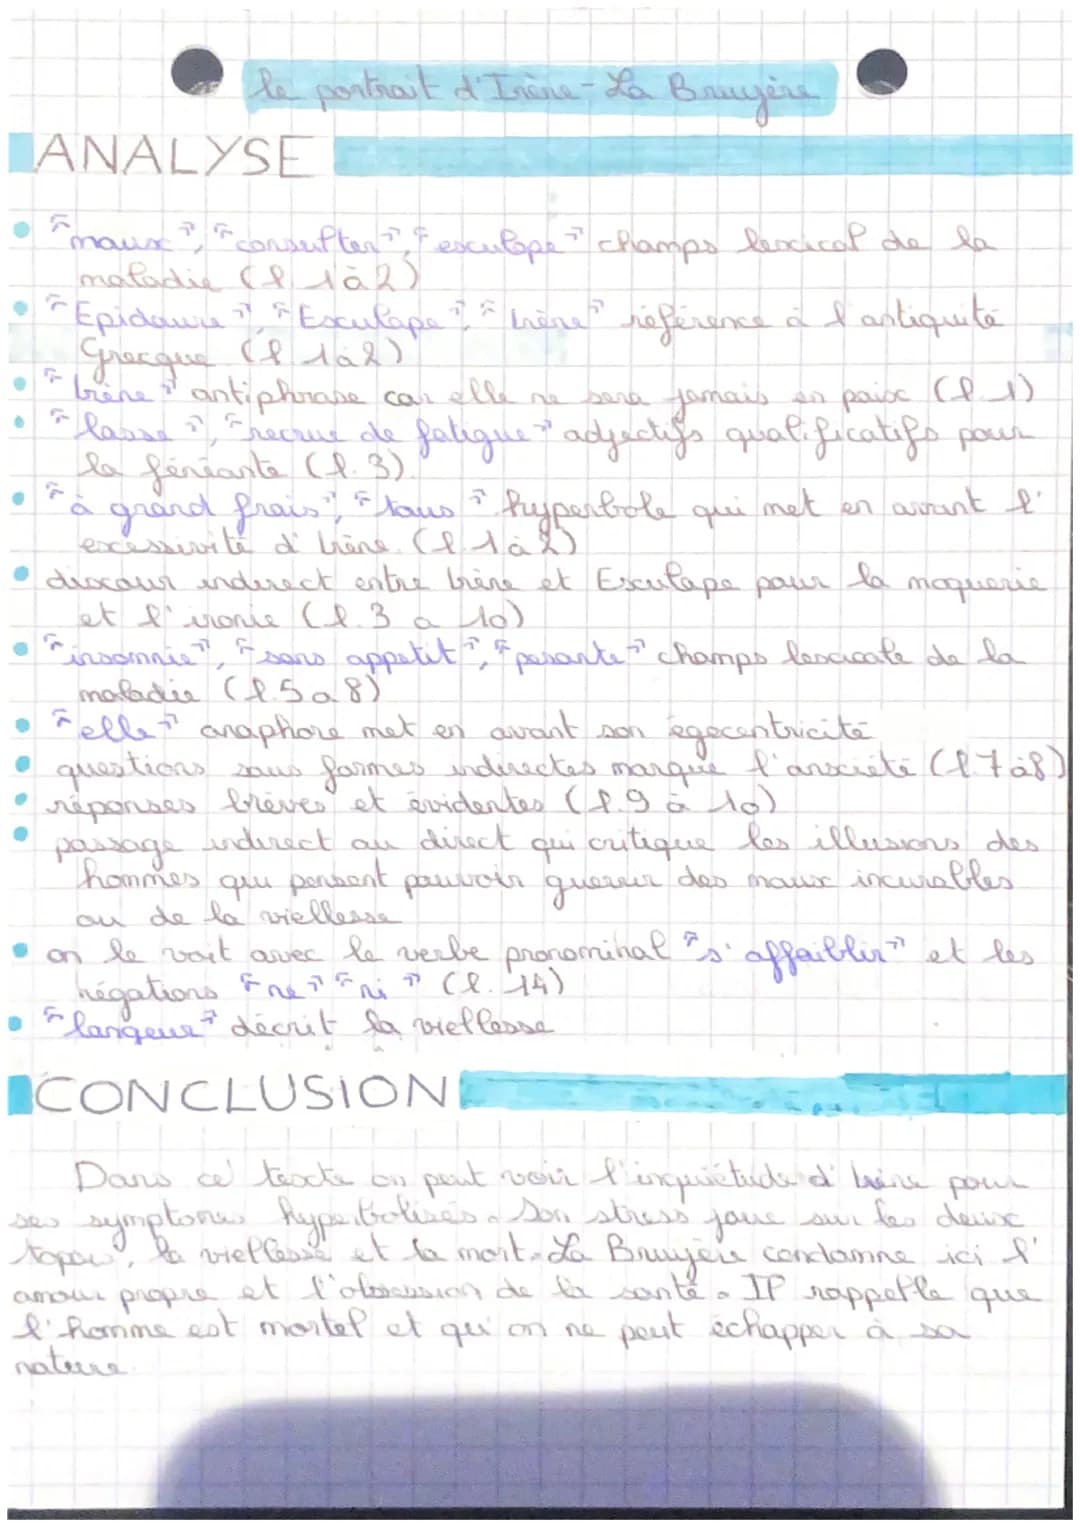 le portrait d'Irène - La Bruyère
ANALYSE
"maux", "consulter", "esculape" champs lexical de la
maladie (l. 1 à 2)
"Epidaure", "Esculape", "Irène" référence à l'antiquité
Grecque (l 1 à 2)
"Irène" antiphrase car elle ne sera jamais en paix (l. 1)
"lasse", "recrue de fatigue" adjectifs qualificatifs pour
la fénéante (l. 3)
"à grand frais", "tous" hyperbole qui met en avant l'
excessivité d'Irène (l 1 à 2)
discour indirect entre Irène et Esculape pour la moquerie
et l'ironie (l. 3 a 10)
"insomnie", "sans appetit", "pesante" champs lexicale de la
maladie (l. 5 a 8)
"elle" anaphore met en avant son égocentricité
questions sous formes indirectes marque l'anxiété (l. 7 à 8)
réponses brèves et évidentes (l. 9 à 10)
passage indirect au direct qui critique les illusions des
hommes qui pensent pouvoir guerrir des maux incurables
ou de la viellesse
on le voit avec le verbe pronominal "s'affaiblir" et les
négations "ne" "ni" (l. 14)
"langeur" décrit la viellesse
CONCLUSION
Dans ce texte on peut voir l'inquiétude d'Irène pour
ses symptomes hyperbolisés. Son stress joue sur les deux
topos, la viellesse et la mort. La Bruyère condamne ici l'
amour propre et l'obsession de la santé. Il rappelle que
l'homme est mortel et qu'on ne peut échapper à sa
nature.